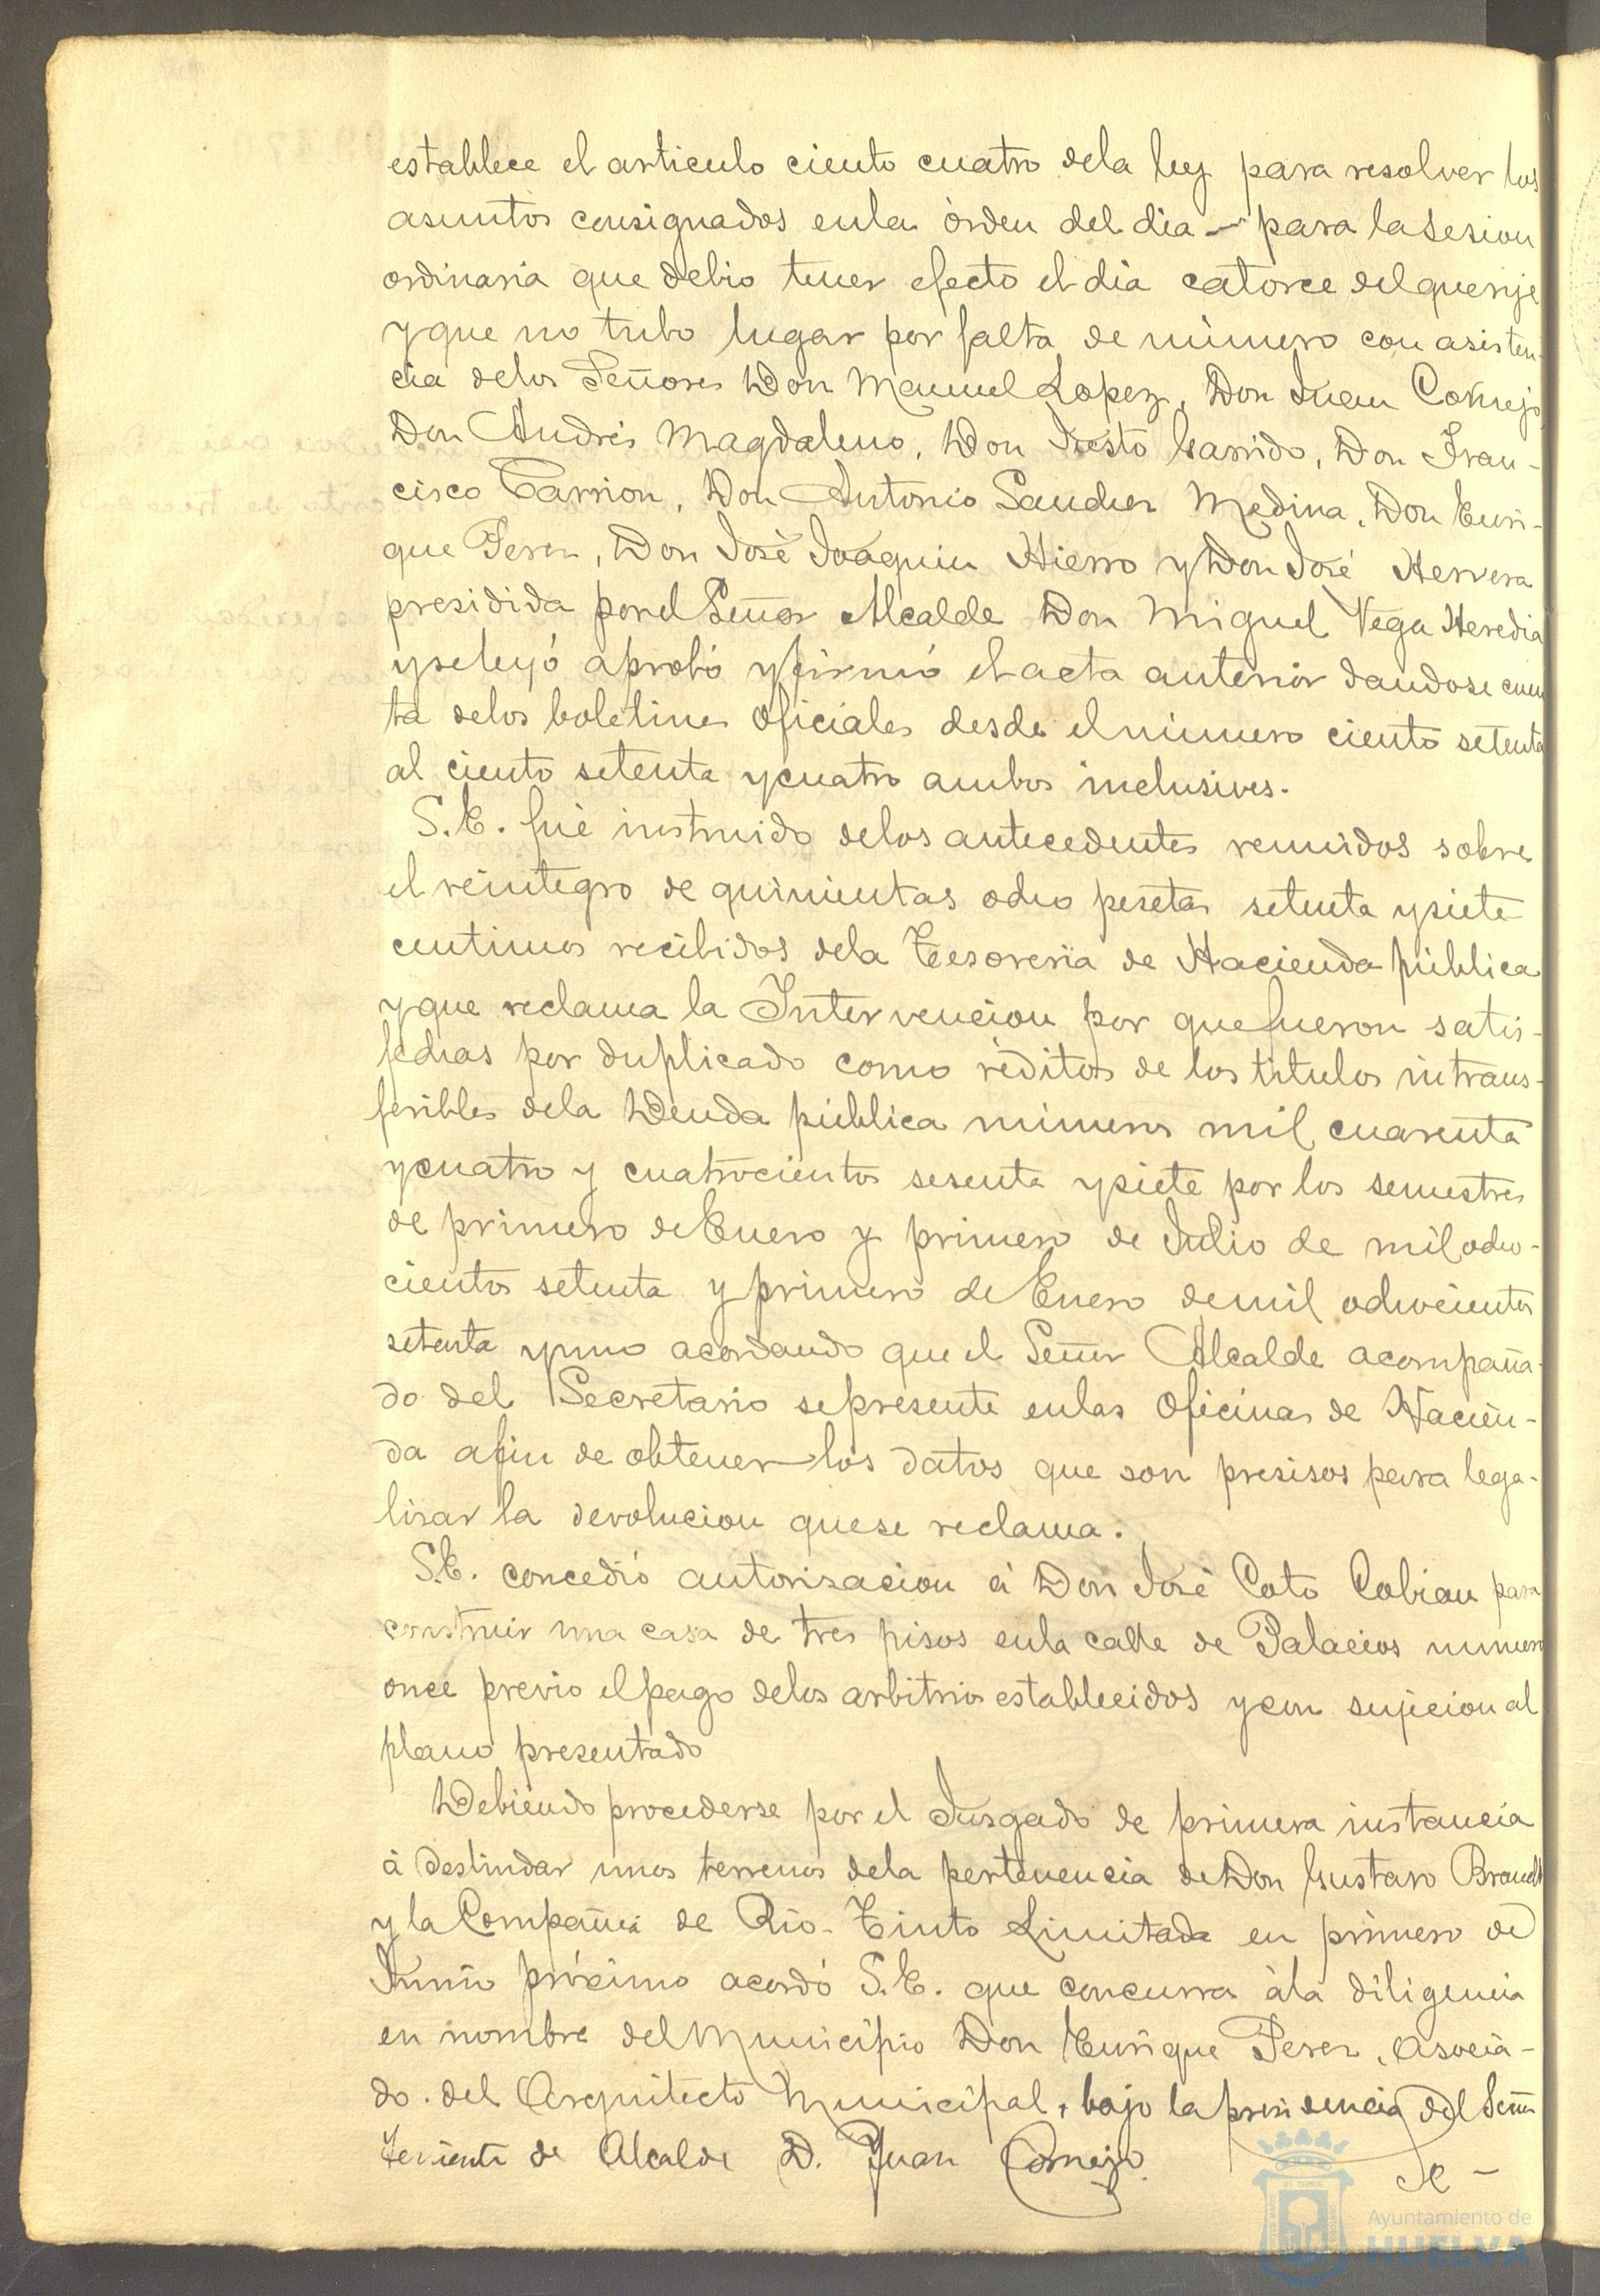 establece el articulo ciento cuatro dela ley para resolver los
asuntos consignados enla órden del dia para la Sesion
ordinaria que debio tener efecto el dia catorce del querije
y que no tubo lugar por falta de número con asisten-
cia delos Señores Don Manuel Lopez, Don Juan Cornejo,
Don Andrés Magdaleno, Don Justo Garrido, Don Fran-
cisco Carrion, Don Antonio Sanchez Medina, Don Enri-
que Perez, Don José Joaquin Hierro y Don José Herrera
presidida porel Señor Alcalde Don Miguel Vega Heredia
yseleyó aprobó yfirmó el acta anterior dandose cuen
ta delos boletines oficiales desde elnúmero ciento setenta
al ciento setenta ycuatro ambos inclusives.
S.E. fué instruido delos antecedentes reunidos sobre
el reintegro de quinientas ocho pesetas setenta ysiete
centimos recibidos dela Tesoreria de Hacienda pública
yque reclama la Intervencion por que fueron satis-
fechas por duplicado como réditos de los titulos intrans-
feribles dela Deuda pública números mil cuarenta
ycuatro y cuatrocientos sesenta ysiete por los semestres
de primero de Enero y primero de Julio de mil ocho-
cientos setenta y primero de Enero demil ochocientos
setenta yuno acordando que el Señor Alcalde acompaña-
do del Secretario sepresente enlas oficinas de Hacien-
da afin de obtener los datos que son presisos para lega-
lisar la devolucion quese reclama.
S.E. concedió autorisacion á Don José Coto Cobian para
construir una casa de tres pisos enla calle de Palacios numero
once previo elpago delos arbitrios establecidos ycon sujecion al
plano presentado
Debiendo procederse por el Jusgado de primera instancia
á deslindar unos terrenos dela pertenencia de Don Gustavo Brandt
y la Compañia de Rio-Tinto Limitada en primero de
Junio próximo acordó S.E. que concurra ála diligencia
en nombre del Municipio Don Enrique Perez, asocia-
do del Arquitecto Municipal, bajo la presidencia del Señor
Teniente de Alcalde D. Juan Cornejo.
Se-
Ayuntamiento de
HUELVA